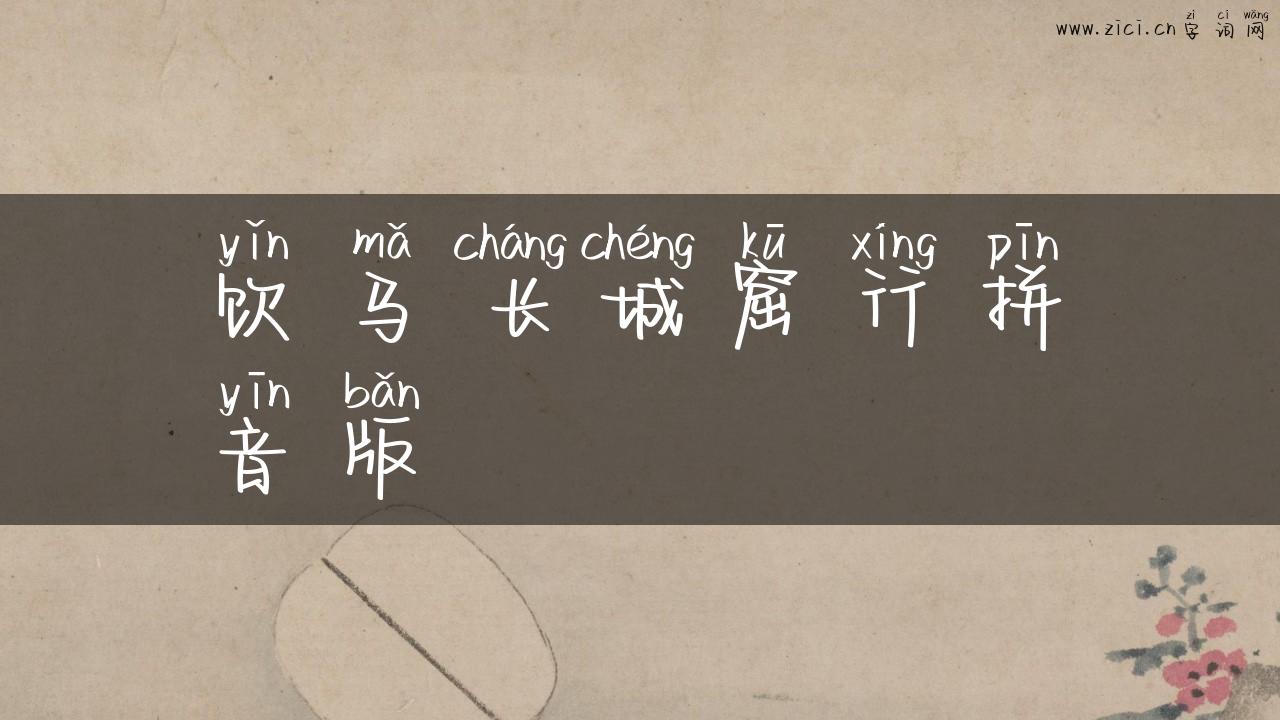 zì cí wǎng
www.zici.cn 字词网
yǐn mǎ cháng chéng kū xíng pīn
饮马长城窟行拼
yīn bǎn
音版